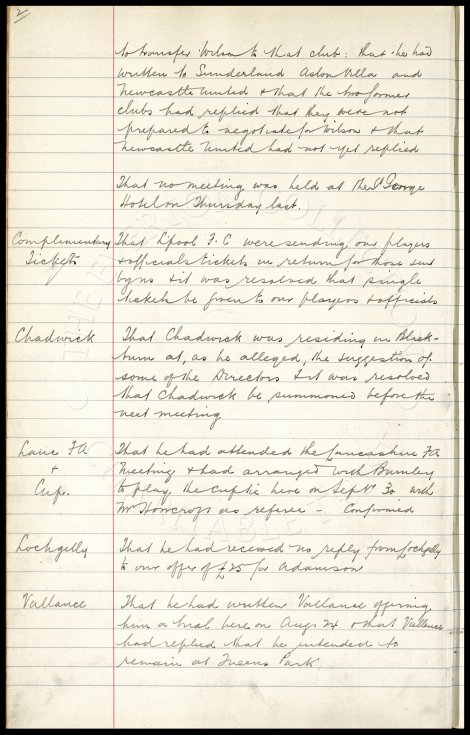 2
to transfer Wilson to that club: that he had
written to Sunderland Aston Villa and
Newcastle United & that the two former
clubs had replied that they were not
prepared to negotiate for Wilson & that
Newcastle United had not yet replied
That no meeting was held at the St George
Hotel on Thursday last.
Complimentary That Lpool F.C were sending our players
Tickets & officials tickets in return for those sent
by us & it was resolved that single
tickets be given to our players & officials
Chadwick That Chadwick was residing in Black-
burn at, as he alleged, the suggestion of
some of the Directors & it was resolved
that Chadwick be summoned before the
next meeting
Lanc FA That he had attended the Lancashire FA
& Meeting & had arranged with Burnley
Cup. to play the cuptie here on Sept 30 with
Mr Howcroft as referee - Confirmed
Lochgelly That he had received no reply from Lochgelly
to our offer of £25 for Adamson
Vallance That he had written Vallance offering
him a trial here on Augs 24 & that Vallance
had replied that he intended to
remain at Queens Park